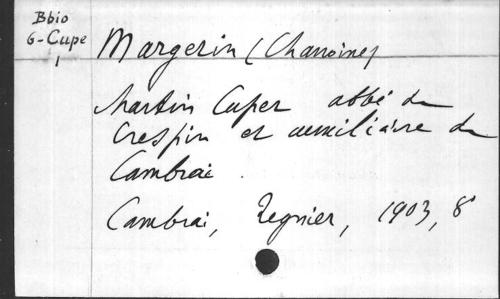 Bbio
G-Cupe
1
Margerin (Chanoine)
Martin Cuper abbé de
Crespin et auxiliaire de
Cambrai.
Cambrai, Regnier, 1903, 8°